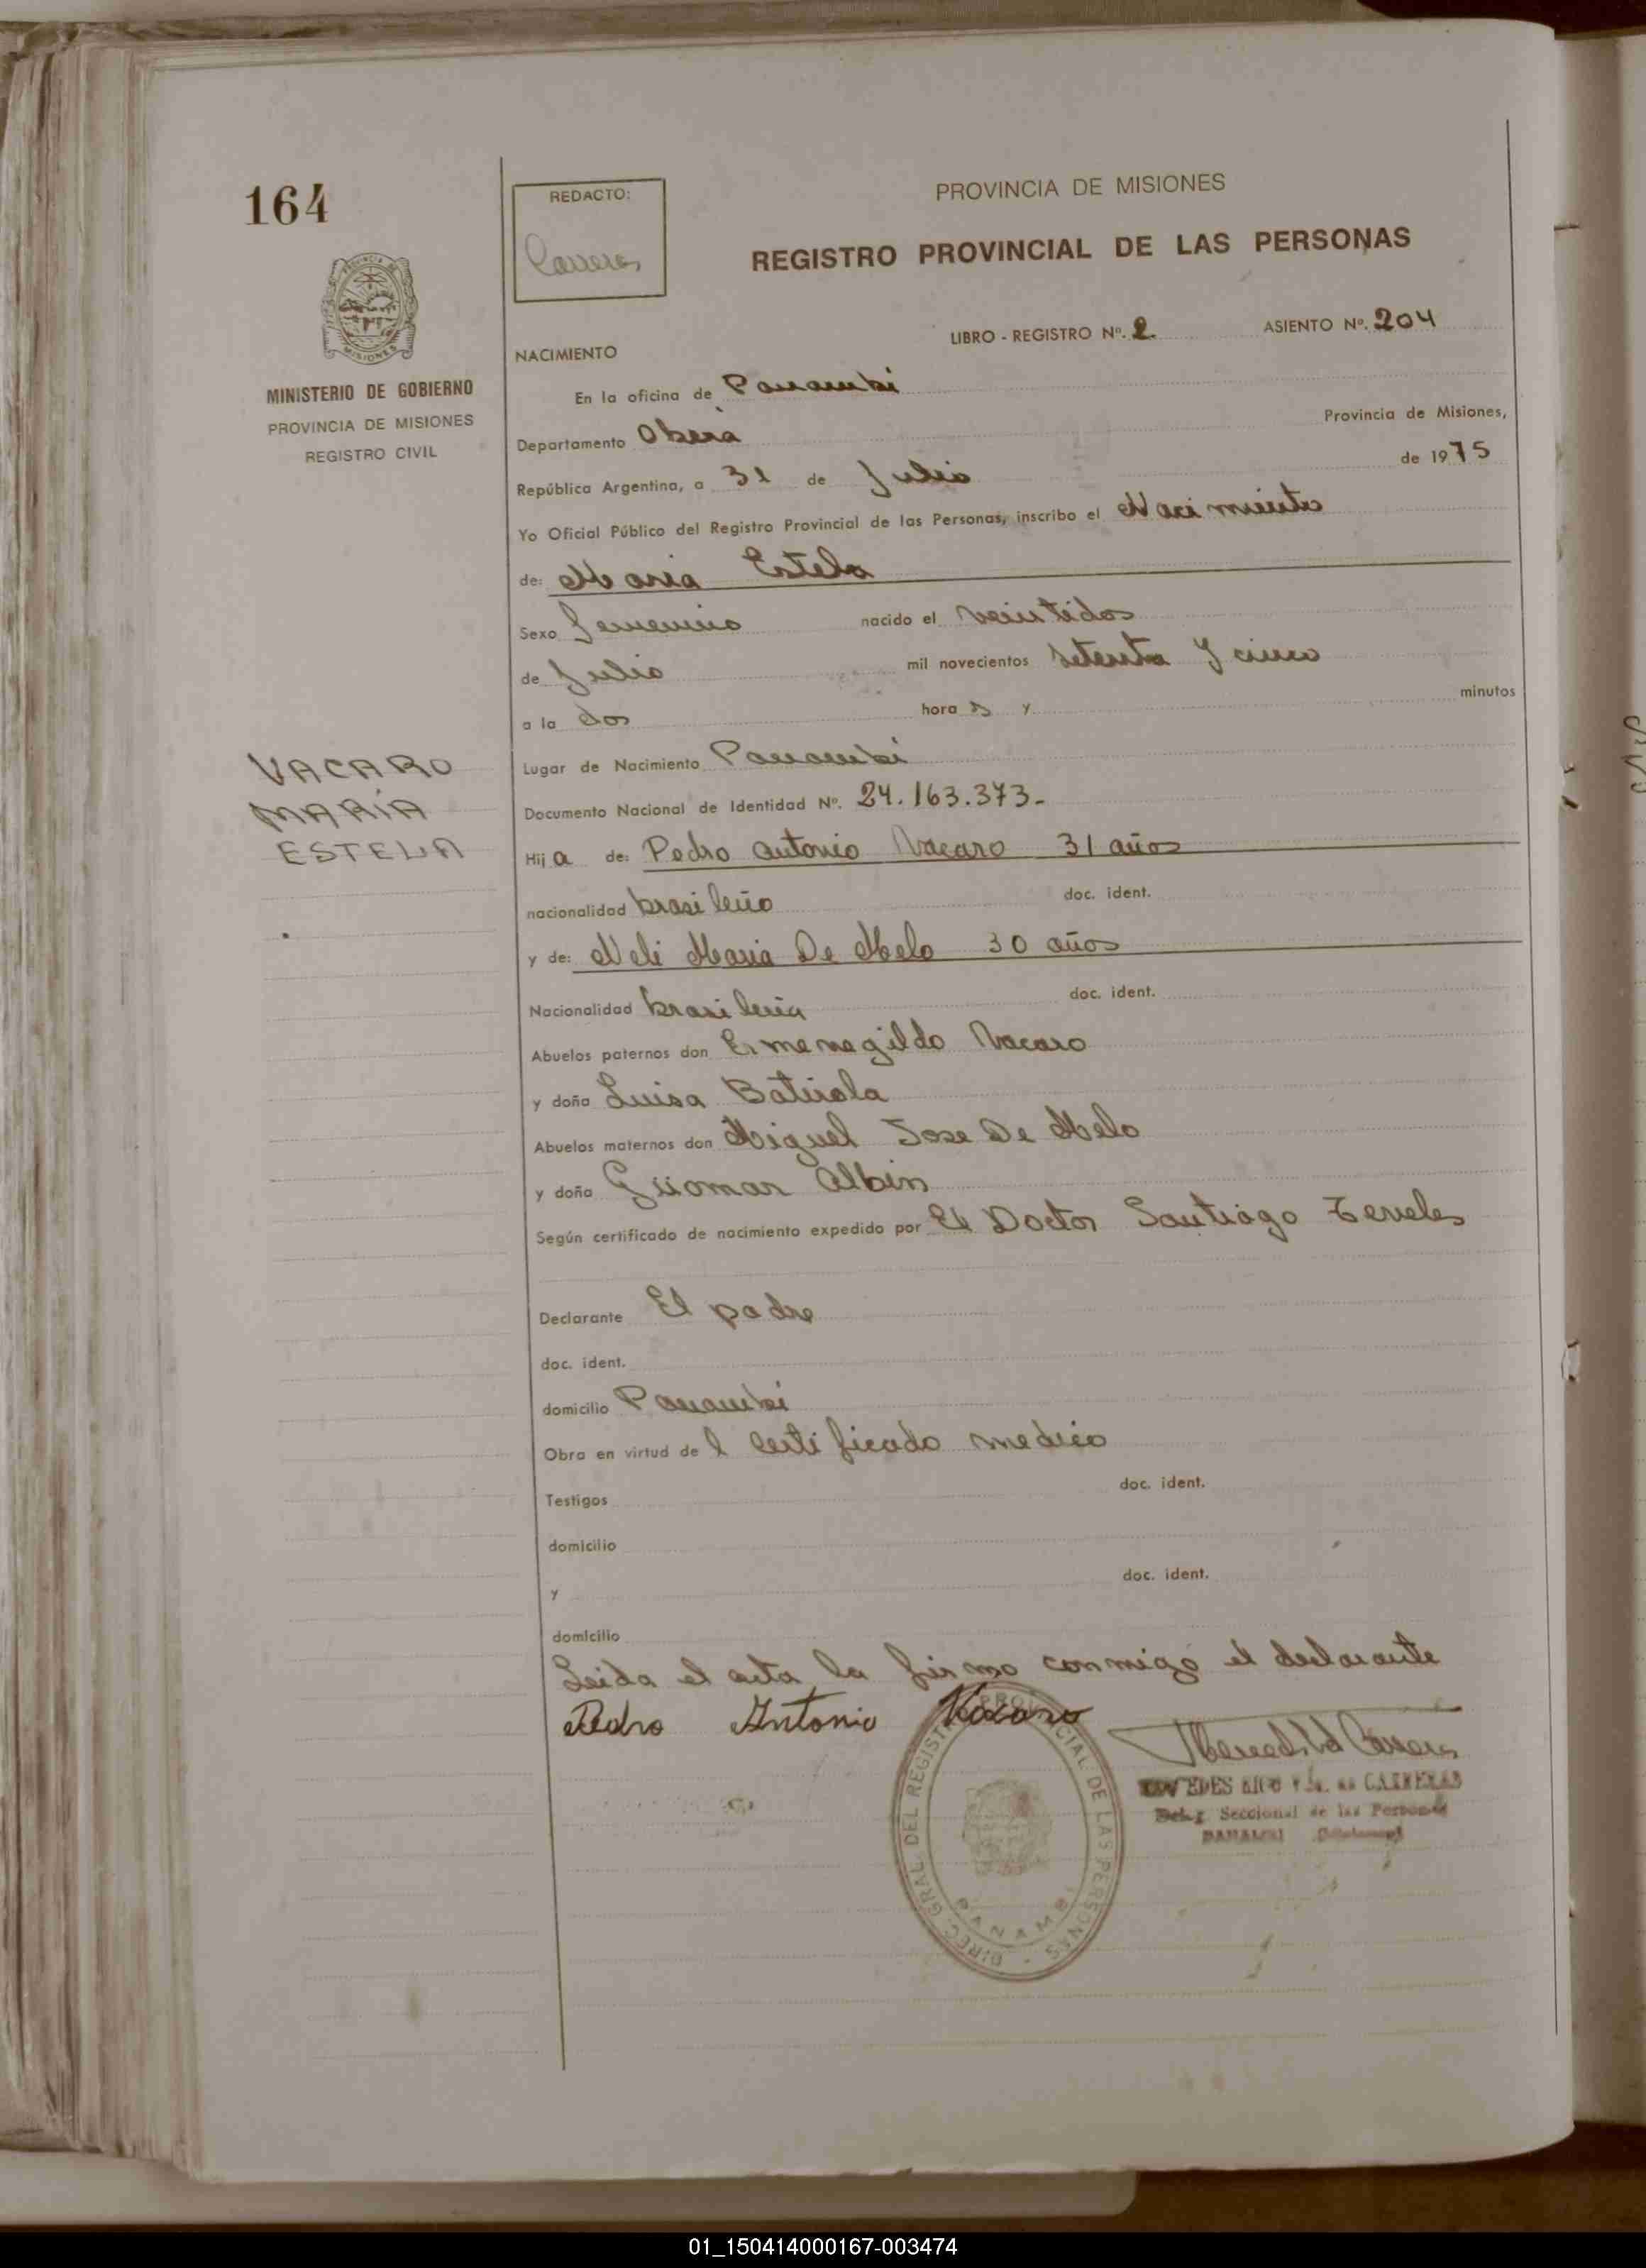 164
REDACTO:
Carreras
PROVINCIA DE MISIONES
REGISTRO PROVINCIAL DE LAS PERSONAS
PROVINCIA DE
MISIONES
MINISTERIO DE GOBIERNO
PROVINCIA DE MISIONES
REGISTRO CIVIL
LIBRO - REGISTRO Nº. 2 ASIENTO Nº. 204
NACIMIENTO
En la oficina de Panambi
Departamento Obera Provincia de Misiones,
República Argentina, a 31 de Julio de 1975
Yo Oficial Público del Registro Provincial de las Personas, inscribo el Nacimiento
de: Maria Estela
Sexo femenino nacido el veintidos
de Julio mil novecientos setenta y cinco
a la dos hora s y minutos
VACARO
MARÍA
ESTELA
Lugar de Nacimiento Panambi
Documento Nacional de Identidad Nº. 24.163.373-
Hij a de: Pedro antonio Vacaro 31 años
nacionalidad brasileño doc. ident.
y de: Neli Maria De Melo 30 años
Nacionalidad brasileña doc. ident.
Abuelos paternos don Ermenegildo Vacaro
y doña Luisa Batirola
Abuelos maternos don Miguel Jose De Melo
y doña Guiomar Albin
Según certificado de nacimiento expedido por El Doctor Santiago
Declarante El padre
doc. ident.
domicilio Panambi
Obra en virtud de l certificado medico
Testigos doc. ident.
domicilio
y doc. ident.
domicilio
Leida el acta la firma conmigo el declarante
Pedro Antonio Vacaro
DIREC. GRAL. DEL REGISTRO PROVINCIAL DE LAS PERSONAS
PANAMBI
de CARRERAS
Seccional de las Personas
PANAMBI
01_150414000167-003474